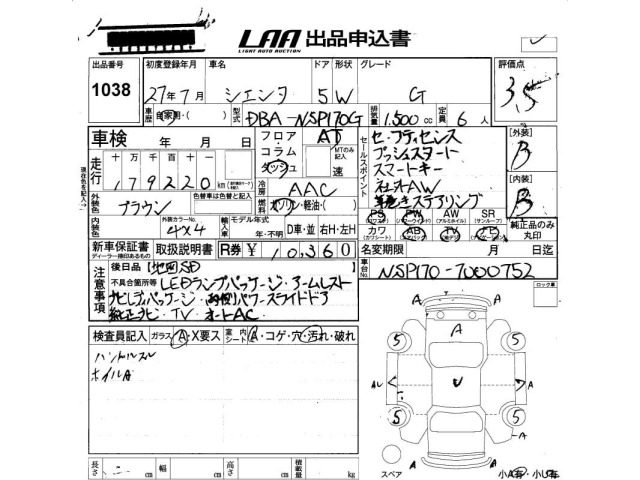 LAA 出品申込書
LIGHT AUTO AUCTION
出品番号 初度登録年月 車名 ドア 形状 グレード 評価点
1038 27年7月 シエンタ 5 W G 3.5
車歴 自家用・( ) 型式 DBA-NSP170G 排気量 1,500cc 定員 6人
車検 年 月 日 フロア・コラム・ダッシュ AT MTのみ記入 速
セールスポイント
セーフティセンス
プッシュスタート
スマートキー
社外AW
革巻きステアリング
[外装] B
[内装] B
走行 十万 万 千 百 十 一
179220km
現在色を記入→
冷房 AAC
外装色 ブラウン 色替車は色替と記入 燃料 ガソリン・軽油・( )
内装色 外装カラーNo. 4X4 輸入車 モデル年式 年・不明 D車・並 右H・左H
PS PW AW SR
カワ AB TV
純正品のみ丸印
新車保証書 取扱説明書 R券 ¥ 10,360
ディーラー捺印あるもの
名変期限 月 日迄
車台No. NSP170-7000752
注意事項
後日品 (地図SD)
不具合箇所等 LEDランプパッケージ・アームレスト
ナビレディパッケージ・両側パワースライドドア
純正ナビ・TV オートAC
ロック車
検査員記入 ガラス A・X要ス 室内シート A・コゲ・穴・汚れ・破れ
ハンドルスレ
ホイルA
A
A
5 5
A
A
5 5
A
A
スペア
小A有・小U有
長さ cm 幅 cm 高さ cm 積載量 kg